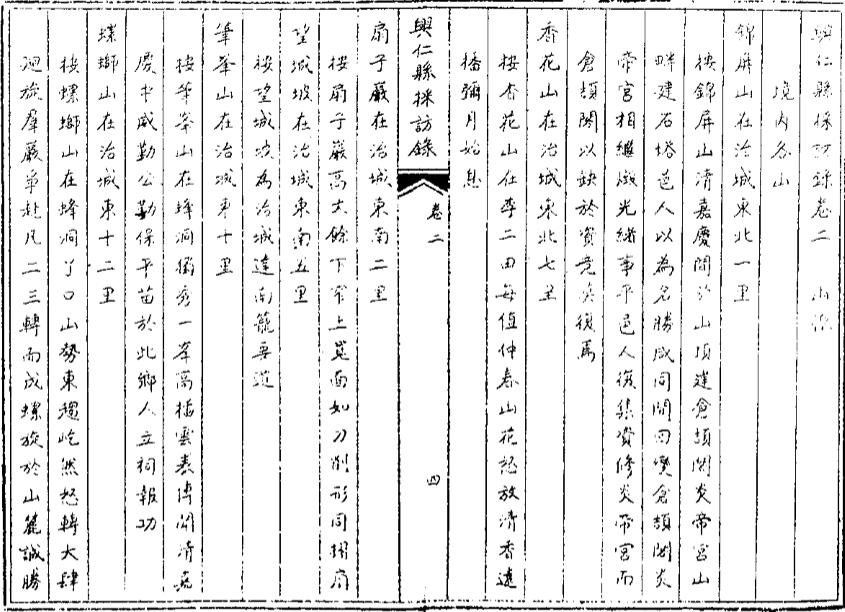 興仁縣採訪錄卷二　山
境內各山
錦屏山在治城東北一里
按錦屏山清嘉慶間於山頂建倉頡閣炎帝宮山
畔建石塔邑人以為名勝咸同間回變倉頡閣炎
帝宮相繼燬光緒事平邑人復集資修炎帝宮而
倉頡閣以缺於資竟未復焉
香花山在治城東北七里
按香花山在李二田每值仲春山花怒放清香遠
播彌月始息
興仁縣採訪錄
卷二
四
扇子巖在治城東南二里
按扇子巖高丈餘下窄上寬面如刀削形同摺扇
望城坡在治城東南五里
按望城坡為治城達南籠要道
筆峯山在治城東十里
按筆峯山在蜂洞獨秀一峯高插雲表傳聞清嘉
慶中威勤公勒保平苗於此鄉人立祠報功
螺螄山在治城東十二里
按螺螄山在蜂洞丫口山勢東趨屹然怒轉大肆
迴旋羣巖爭赴凡二三轉而成螺旋於山麓誠勝